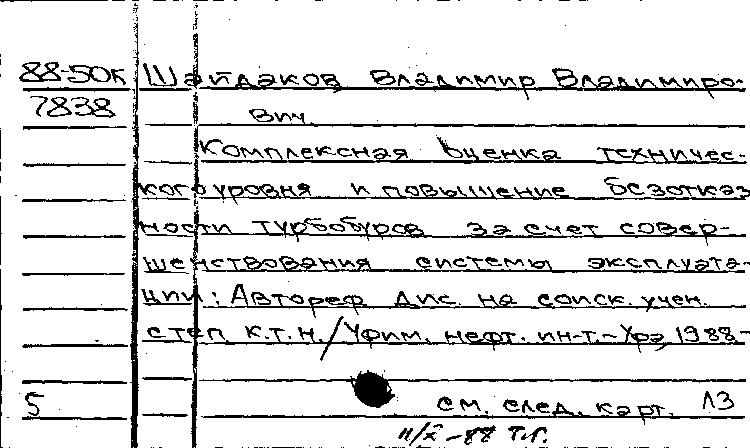 88-50к Шайдаков Владимир Владимиро-
7838 вич.
Комплексная оценка техничес-
кого уровня и повышение безотказ
ности турбобуров за счет совер-
шенствования системы эксплуата-
ции: Автореф дис. на соиск. учен.
степ к.т.н./Уфим. нефт. ин-т.- Уфа, 1988-
5 см. след. карт. 13
11/X-88 т.г.